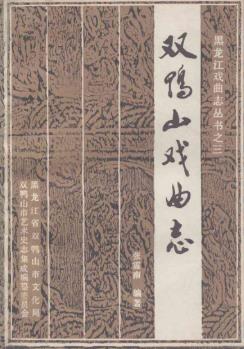 黑龙江戏曲志丛书之三
双鸭山戏曲志
编著
黑龙江省双鸭山市文化局
双鸭山市艺术史志集成编纂委员会